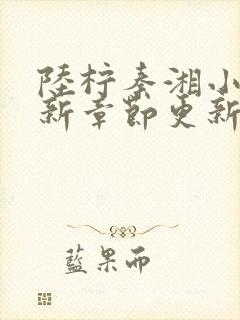 陸柠秦湘小
新章節更新
藍果而